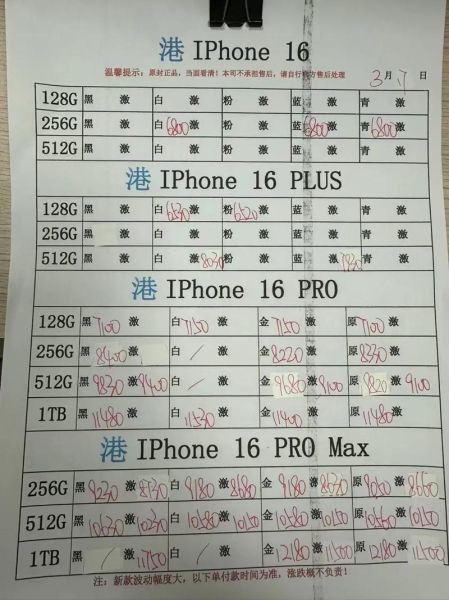 港 IPhone 16
温馨提示：原封正品，当面看清！本司不承担售后，请自行官方售后处理 3月17日
128G 黑 激 白 激 粉 激 蓝 激 青 激
256G 黑 激 白 6800 激 粉 激 蓝 6800 激 青 6800 激
512G 黑 激 白 激 粉 激 蓝 激 青 激
港 IPhone 16 PLUS
128G 黑 激 白 6530 激 粉 6520 激 蓝 激 青 激
256G 黑 激 白 激 粉 激 蓝 激 青 激
512G 黑 激 白 激 8030 粉 激 蓝 激 7830 青 激
港 IPhone 16 PRO
128G 黑 7100 激 白 7150 激 金 7150 激 原 7100 激
256G 黑 8400 激 白 / 激 金 8220 激 原 8330 激
512G 黑 9830 激 9400 白 / 激 金 9680 激 9100 原 9820 激 9100
1TB 黑 11480 激 白 11530 激 金 11400 激 原 11480 激
港 IPhone 16 PRO Max
256G 黑 9230 激 8530 白 9180 激 8680 金 9180 激 8630 原 9050 激 8660
512G 黑 10630 激 10230 白 10580 激 10150 金 10580 激 10150 原 10560 激 10150
1TB 黑 / 激 11750 白 / 激 金 12180 激 11500 原 12180 激 11500
注：新款波动幅度大，以下单付款时间为准，涨跌概不负责！